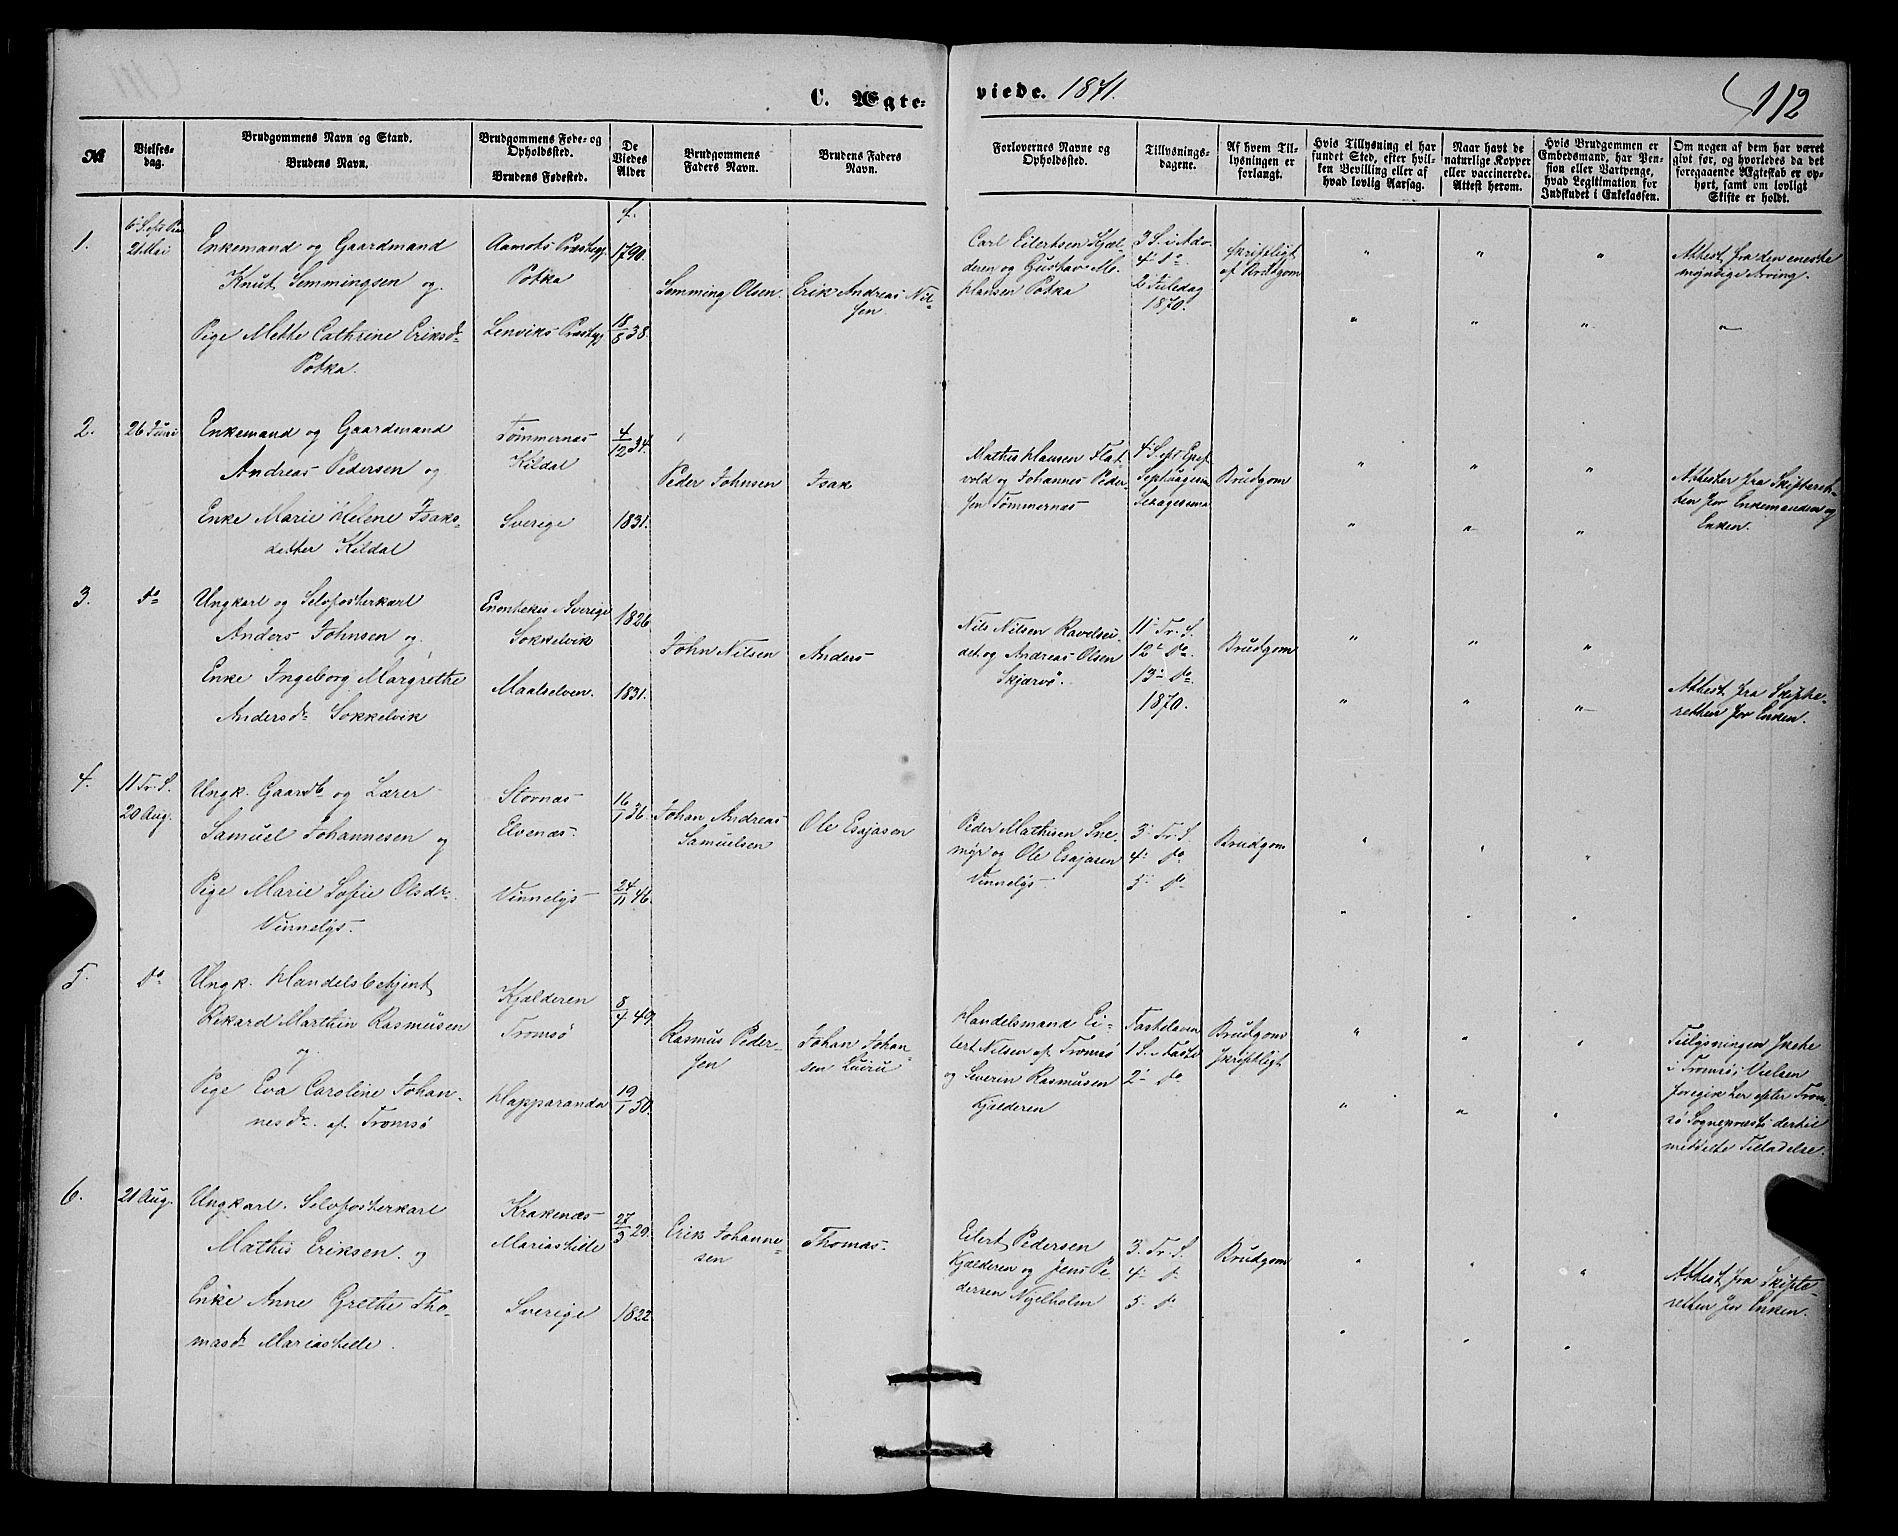 C. Ægte-
viede. 1871.
112
№
Vielses-
dag.
Brudgommens Navn og Stand.
Brudens Navn.
Brudgommens Føde- og
Opholdssted.
Brudens Fødested.
De
Viedes
Alder
Brudgommens
Faders Navn.
Brudens Faders
Navn.
Forlovernes Navne og
Opholdssted.
Tillysnings-
dagene.
Af hvem Til-
lysningen er
forlangt.
Hvis Tillysning ei har
fundet Sted, efter hvil-
ken Bevilling eller af
hvad lovlig Aarsag.
Naar havt de
naturlige Kopper
eller vaccinerede.
Attest herom.
Hvis Brudgommen er
Embedsmand, har Pen-
sion eller Vartpenge,
hvad Legitimation for
Indskudet i Enkekassen.
Om nogen af dem har været
givt før, og hvorledes da det
foregaaende Ægteskab er op-
hørt, samt om lovligt
Skifte er holdt.
1.
21 Mai
Enkemand og Gaardmand
Knut Semmingsen og
Pige Mette Cathrine Eriksdr
Potka.
Aamots Præstegj.
Potka
Lenviks Præstegj
1790.
18/8 38.
Semming Olsen.
Erik Andreas Nil-
sen
Carl Eilertsen Kjæl-
deren og Gustav
Hansen Potka
3 S. i Adv.
4 do
2 Juledag
1870.
skriftligt
af Brudgom
" " "
Attest fra den eneste
myndige Arving.
" " " "
2.
26 Juni
Enkemand og Gaardmand
Andreas Pedersen og
Enke Marie Helene Isaks-
datter Kildal
Tømmernæs
Kildal
Sverige
4/12 34.
1831.
Peder Johnsen
Isak
Mathis Hansen Flat-
vold og Johannes Peder-
sen Tømmernæs
4 S. eft Epif
Septuagesima
Sexagesima
Brudgom
" " "
Attester fra Skifteret-
ten for Enkemanden og
Enken.
" " "
3.
do
Ungkarl og Selvfosterkarl
Anders Johnsen og
Enke Ingeborg Margrethe
Andersdr Sokkelvik
Enontekis i Sverige
Sokkelvik
Maalselven.
1826
1831.
John Nilsen
Anders
Nils Nilsen Ravelsei-
det og Andreas Olsen
Skjærvö.
11 Tr. S.
12 do
13 do
1870.
Brudgom
" " "
Attest fra Skifte-
retten for Enken.
" " "
4.
11 Tr. S.
20 Aug.
Ungk. Gaardb. og Lærer
Samuel Johannesen og
Pige Marie Sofie Olsdr.
Vinnelys.
Stornæs
Elvenæs
Vinnelys
16/1 36.
24/11 46.
Johan Andreas
Samuelsen
Ole Esajasen
Peder Mathisen Sne-
myr og Ole Esajasen
Vinnelys.
3 Tr. S.
4 do
5 do
Brudgom
" " "
" " "
5.
do
Ungk. Handelsbetjent
Rikard Marthin Rasmusen
og
Pige Eva Caroline Johan-
nesdr. af Tromsø
Kjælderen
Tromsø
Happaranda
8/4 49
19/1 50.
Rasmus Peder-
sen
Johan Johan-
sen
Handelsmand Ei-
lert Nilsen af Tromsø
og Severin Rasmusen
Kjælderen
Fastelavn
1 S. i Faste
2 do
Brudgom
skriftligt
" " "
Tillysningen skete
i Tromsø; Vielsen
foregik her efter Trom-
sø Sognepræsts dertil
meddelte Tilladelse.
" " "
6.
21 Aug.
Ungkarl. Selvfosterkarl
Mathis Eriksen. og
Enke Anne Grethe Tho-
masdr Mariashille.
Krakenæs
Mariashille
Sverige
27/3 29.
1822.
Erik Johanne-
sen
Thomas.
Eilert Pedersen
Kjælderen og Jens Pe-
dersen Nyelholm
3 Tr. S.
4 do
5 do
Brudgom
" " "
Attest fra Skifte-
retten for Enken.
" " "